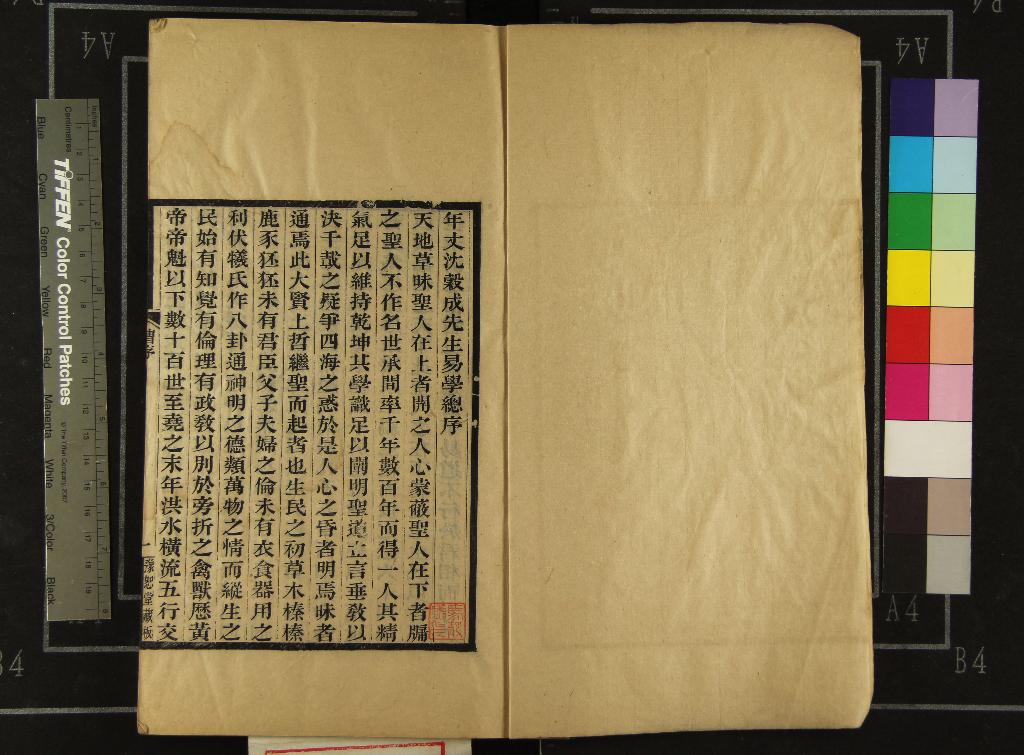 年丈沈穀成先生易學總序
天地草昧聖人在上者開之人心蒙蔽聖人在下者牖
之聖人不作名世承間率千年數百年而得一人其精
氣足以維持乾坤其學識足以闡明聖道立言垂敎以
決千載之疑爭四海之惑於是人心之昏者明焉昧者
通焉此大賢上哲繼聖而起者也生民之初草木榛榛
鹿豕狉狉未有君臣父子夫婦之倫未有衣食器用之
利伏犧氏作八卦通神明之德類萬物之情而縱生之
民始有知覺有倫理有政敎以別於旁折之禽獸歷黃
帝帝魁以下數十百世至堯之末年洪水橫流五行交
曹序
一
豫恕堂藏板
Inches
Centimetres
TIFFEN Color Control Patches
© The Tiffen Company, 2007
Blue
Cyan
Green
Yellow
Red
Magenta
White
3/Color
Black
A4
A4
A4
B4
B4